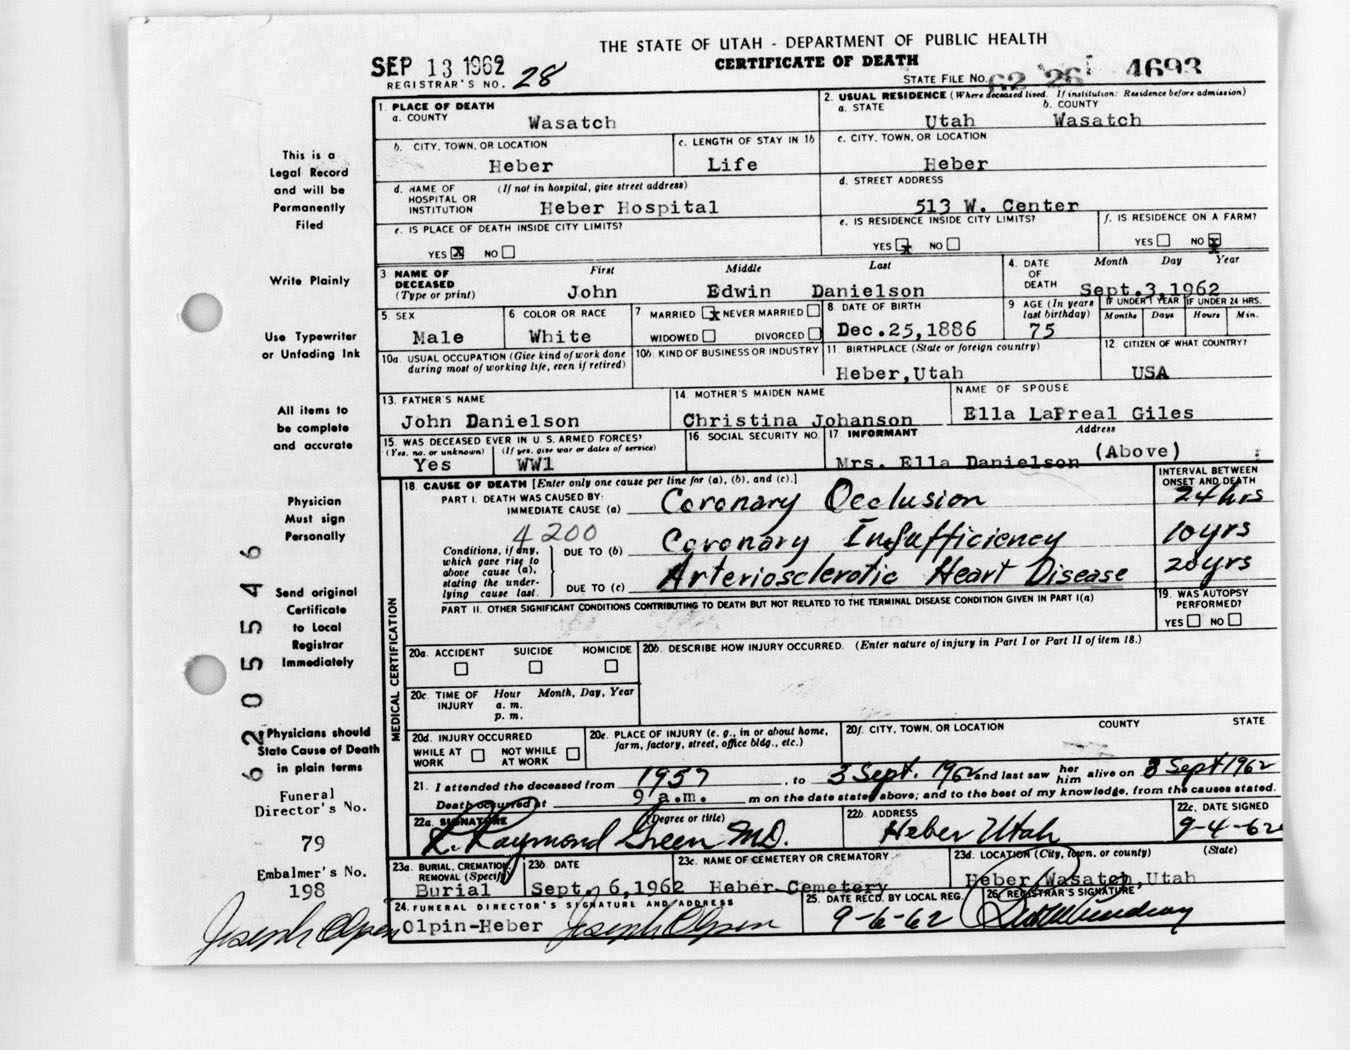 THE STATE OF UTAH - DEPARTMENT OF PUBLIC HEALTH
CERTIFICATE OF DEATH
SEP 13 1962
REGISTRAR'S NO. 28
STATE FILE NO. 62 26 4693
This is a
Legal Record
and will be
Permanently
Filed
Write Plainly
Use Typewriter
or Unfading Ink
All items to
be complete
and accurate
Physician
Must sign
Personally
Send original
Certificate
to Local
Registrar
Immediately
Physicians should
State Cause of Death
in plain terms
Funeral
Director's No.
79
Embalmer's No.
198
Joseph Olpin
6205546
1. PLACE OF DEATH
a. COUNTY
Wasatch
2. USUAL RESIDENCE (Where deceased lived. If institution: Residence before admission)
a. STATE b. COUNTY
Utah Wasatch
b. CITY, TOWN, OR LOCATION
Heber
c. LENGTH OF STAY IN 1b
Life
c. CITY, TOWN, OR LOCATION
Heber
d. NAME OF (If not in hospital, give street address)
HOSPITAL OR
INSTITUTION Heber Hospital
d. STREET ADDRESS
513 W. Center
e. IS PLACE OF DEATH INSIDE CITY LIMITS?
YES X NO
e. IS RESIDENCE INSIDE CITY LIMITS?
YES x NO
f. IS RESIDENCE ON A FARM?
YES NO x
3 NAME OF First Middle Last
DECEASED
(Type or print) John Edwin Danielson
4. DATE Month Day Year
OF
DEATH Sept.3,1962
5. SEX
Male
6 COLOR OR RACE
White
7 MARRIED x NEVER MARRIED
WIDOWED DIVORCED
8. DATE OF BIRTH
Dec.25,1886
9 AGE (In years
last birthday)
75
IF UNDER 1 YEAR
Months Days
IF UNDER 24 HRS.
Hours Min.
10a. USUAL OCCUPATION (Give kind of work done
during most of working life, even if retired)
10b. KIND OF BUSINESS OR INDUSTRY
11. BIRTHPLACE (State or foreign country)
Heber,Utah
12 CITIZEN OF WHAT COUNTRY?
USA
13. FATHER'S NAME
John Danielson
14. MOTHER'S MAIDEN NAME
Christina Johanson
NAME OF SPOUSE
Ella LaPreal Giles
15. WAS DECEASED EVER IN U. S. ARMED FORCES?
(Yes, no, or unknown) (If yes, give war or dates of service)
Yes WW1
16. SOCIAL SECURITY NO.
17 INFORMANT Address
Mrs. Ella Danielson (Above)
MEDICAL CERTIFICATION
18. CAUSE OF DEATH [Enter only one cause per line for (a), (b), and (c).]
INTERVAL BETWEEN
ONSET AND DEATH
PART I. DEATH WAS CAUSED BY:
IMMEDIATE CAUSE (a) Coronary Occlusion 24 hrs
4200
Conditions, if any,
which gave rise to
above cause (a),
stating the under-
lying cause last.
DUE TO (b) Coronary Insufficiency 10 yrs
DUE TO (c) Arteriosclerotic Heart Disease 20 yrs
PART II. OTHER SIGNIFICANT CONDITIONS CONTRIBUTING TO DEATH BUT NOT RELATED TO THE TERMINAL DISEASE CONDITION GIVEN IN PART I(a)
19. WAS AUTOPSY
PERFORMED?
YES NO
20a. ACCIDENT SUICIDE HOMICIDE
20b. DESCRIBE HOW INJURY OCCURRED. (Enter nature of injury in Part I or Part II of item 18.)
20c. TIME OF Hour Month, Day, Year
INJURY a. m.
p. m.
20d. INJURY OCCURRED
WHILE AT WORK NOT WHILE AT WORK
20e. PLACE OF INJURY (e. g., in or about home,
farm, factory, street, office bldg., etc.)
20f. CITY, TOWN, OR LOCATION COUNTY STATE
21. I attended the deceased from 1957, to 3 Sept. 1962 and last saw her him alive on 3 Sept 1962
Death occurred at 9 a.m. m on the date stated above; and to the best of my knowledge, from the causes stated.
22a. SIGNATURE (Degree or title)
R. Raymond Green M.D.
22b. ADDRESS
Heber Utah
22c. DATE SIGNED
9-4-62
23a. BURIAL, CREMATION,
REMOVAL (Specify)
Burial
23b. DATE
Sept. 6,1962
23c. NAME OF CEMETERY OR CREMATORY
Heber Cemetery
23d. LOCATION (City, town, or county) (State)
Heber Wasatch,Utah
24. FUNERAL DIRECTOR'S SIGNATURE AND ADDRESS
Olpin-Heber Joseph Olpin
25. DATE RECD. BY LOCAL REG.
9-6-62
26. REGISTRAR'S SIGNATURE